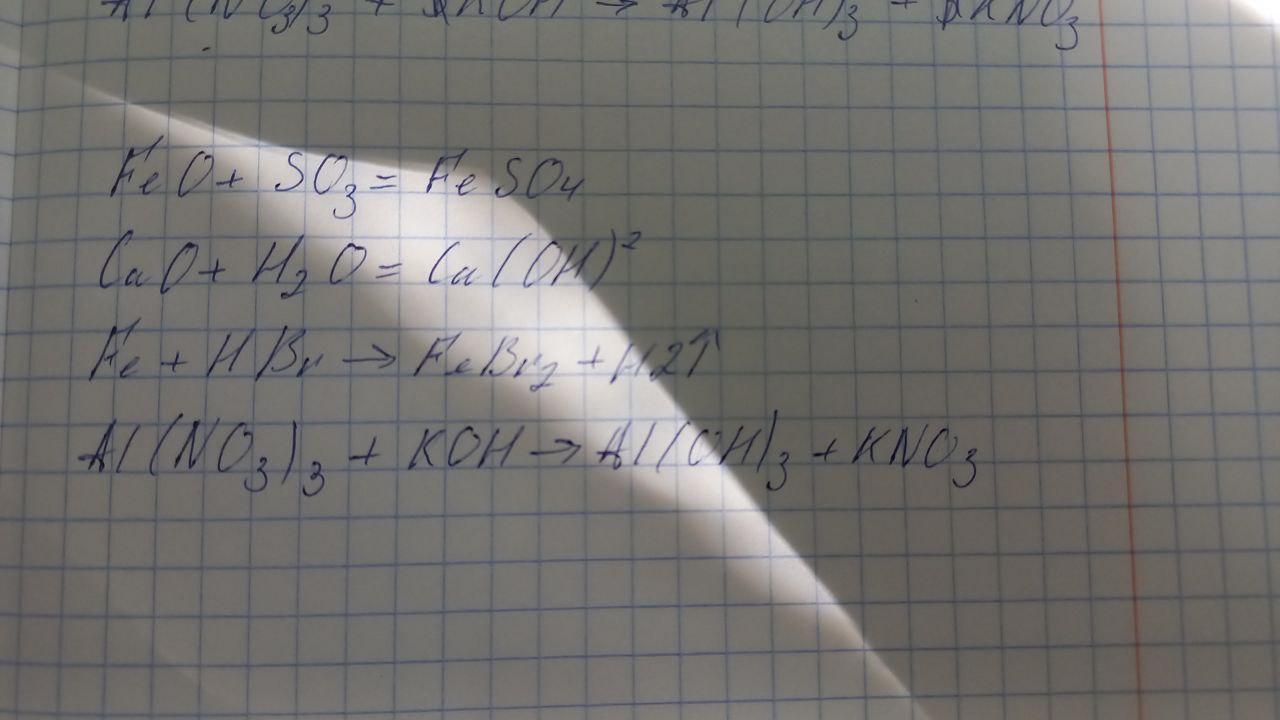 Al(NO₃)₃ + KOH → Al(OH)₃ + KNO₃
FeO + SO₃ = FeSO₄
CaO + H₂O = Ca(OH)²
Fe + HBr → FeBr₂ + H2↑
Al(NO₃)₃ + KOH → Al(OH)₃ + KNO₃